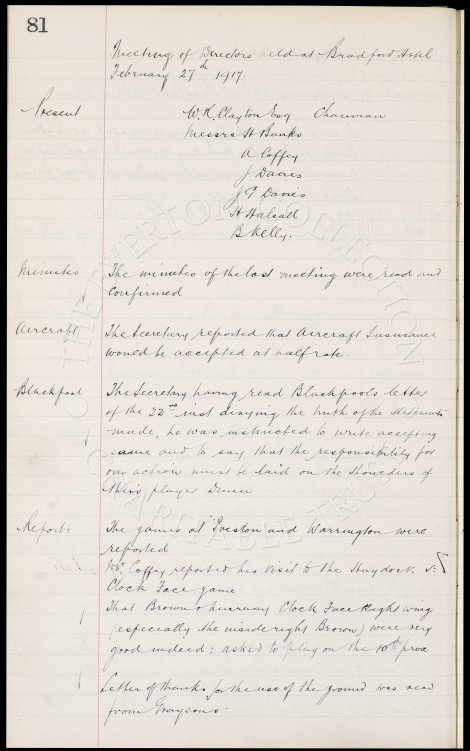 81
Meeting of Directors held at Bradford Hotel
February 27th 1917.
Present
W. R. Clayton Esq Chairman
Messrs H Banks
A Coffey
J Davies
J P Davies
H Halsall
B Kelly.
Minutes
The minutes of the last meeting were read and
Confirmed
Aircraft
The Secretary reported that Aircraft Insurance
would be accepted at half rate.
Blackpool
The Secretary having read Blackpools letter
of the 22nd inst denying the truth of the Statements
made, he was instructed to write accepting
same and to say that the responsibility for
our action must be laid on the shoulders of
their player Dunn
Reports
The games at Preston and Warrington were
reported
Mr. Coffey reported his visit to the Haydock v
Clock Face game
That Brown & Murray Clock Face Right wing
(especially the inside right Brown) were very
good indeed: asked to play on the 10th prox
Letter of thanks for the use of the ground was read
from Graysons.
THE EVERTON COLLECTION
CHARITABLE TRUST